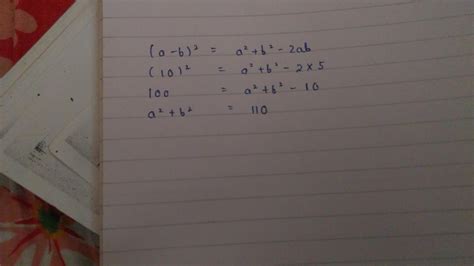 (a-b)² = a²+b²-2ab
(10)² = a²+b²-2×5
100 = a²+b²-10
a²+b² = 110